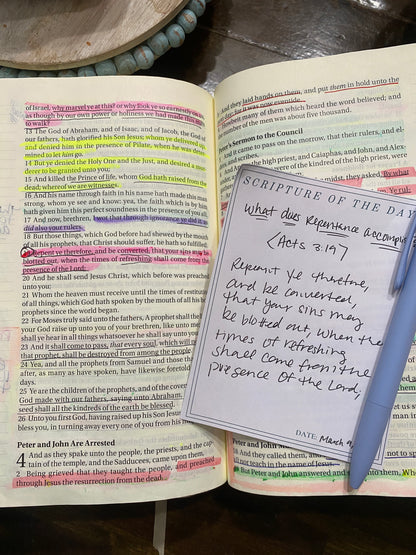 of Israel, why marvel ye at this? or why look ye so earnestly on us,
as though by our own power or holiness we had made this man
to walk?
13 The God of Abraham, and of Isaac, and of Jacob, the God of
our fathers, hath glorified his Son Jesus; whom ye delivered up,
and denied him in the presence of Pilate, when he was determined
mined to let him go.
14 But ye denied the Holy One and the Just, and desired a mur-
derer to be granted unto you;
15 And killed the Prince of life, whom God hath raised from the
dead; whereof we are witnesses.
16 And his name through faith in his name hath made this man
strong, whom ye see and know: yea, the faith which is by him
hath given him this perfect soundness in the presence of you all.
17 And now, brethren, I wot that through ignorance ye did it, as
did also your rulers.
18 But those things, which God before had shewed by the mouth
of all his prophets, that Christ should suffer, he hath so fulfilled.
19 Repent ye therefore, and be converted, that your sins may be
blotted out, when the times of refreshing shall come from the
presence of the Lord;
20 And he shall send Jesus Christ, which before was preached
unto you:
21 Whom the heaven must receive until the times of restitution
of all things, which God hath spoken by the mouth of all his holy
prophets since the world began.
22 For Moses truly said unto the fathers, A prophet shall the
your God raise up unto you of your brethren, like unto me;
shall ye hear in all things whatsoever he shall say unto you.
23 And it shall come to pass, that every soul, which will
that prophet, shall be destroyed from among the people.
24 Yea, and all the prophets from Samuel and those
after, as many as have spoken, have likewise foretold
days.
25 Ye are the children of the prophets, and of the
God made with our fathers, saying unto Abraham,
seed shall all the kindreds of the earth be blessed.
26 Unto you first God, having raised up his Son Jesus
bless you, in turning away every one of you from his
Peter and John Are Arrested
4 And as they spake unto the people, the priests, and the cap-
tain of the temple, and the Sadducees, came upon them,
2 Being grieved that they taught the people, and preached
through Jesus the resurrection from the dead.
they laid hands on them, and put them in hold unto the
day: for it was now eventide.
many of them which heard the word believed; and
number of the men was about five thousand.
Sermon to the Council
it came to pass on the morrow, that their rulers, and el-
scribes,
the high priest, and Caiaphas, and John, and Alex-
were of the kindred of the high priest, were
the midst, they asked, By what
SCRIPTURE OF THE DAY
what does repentence accomplish
<Acts 3:19>
Repent ye therefore,
and be converted,
that your sins may
be blotted out, when the
times of refreshing
shall come from the
presence of the Lord,
DATE: March 9,
Peter and John
18 And they called them, and
all nor teach in the name of Jesus.
But Peter and John answered and